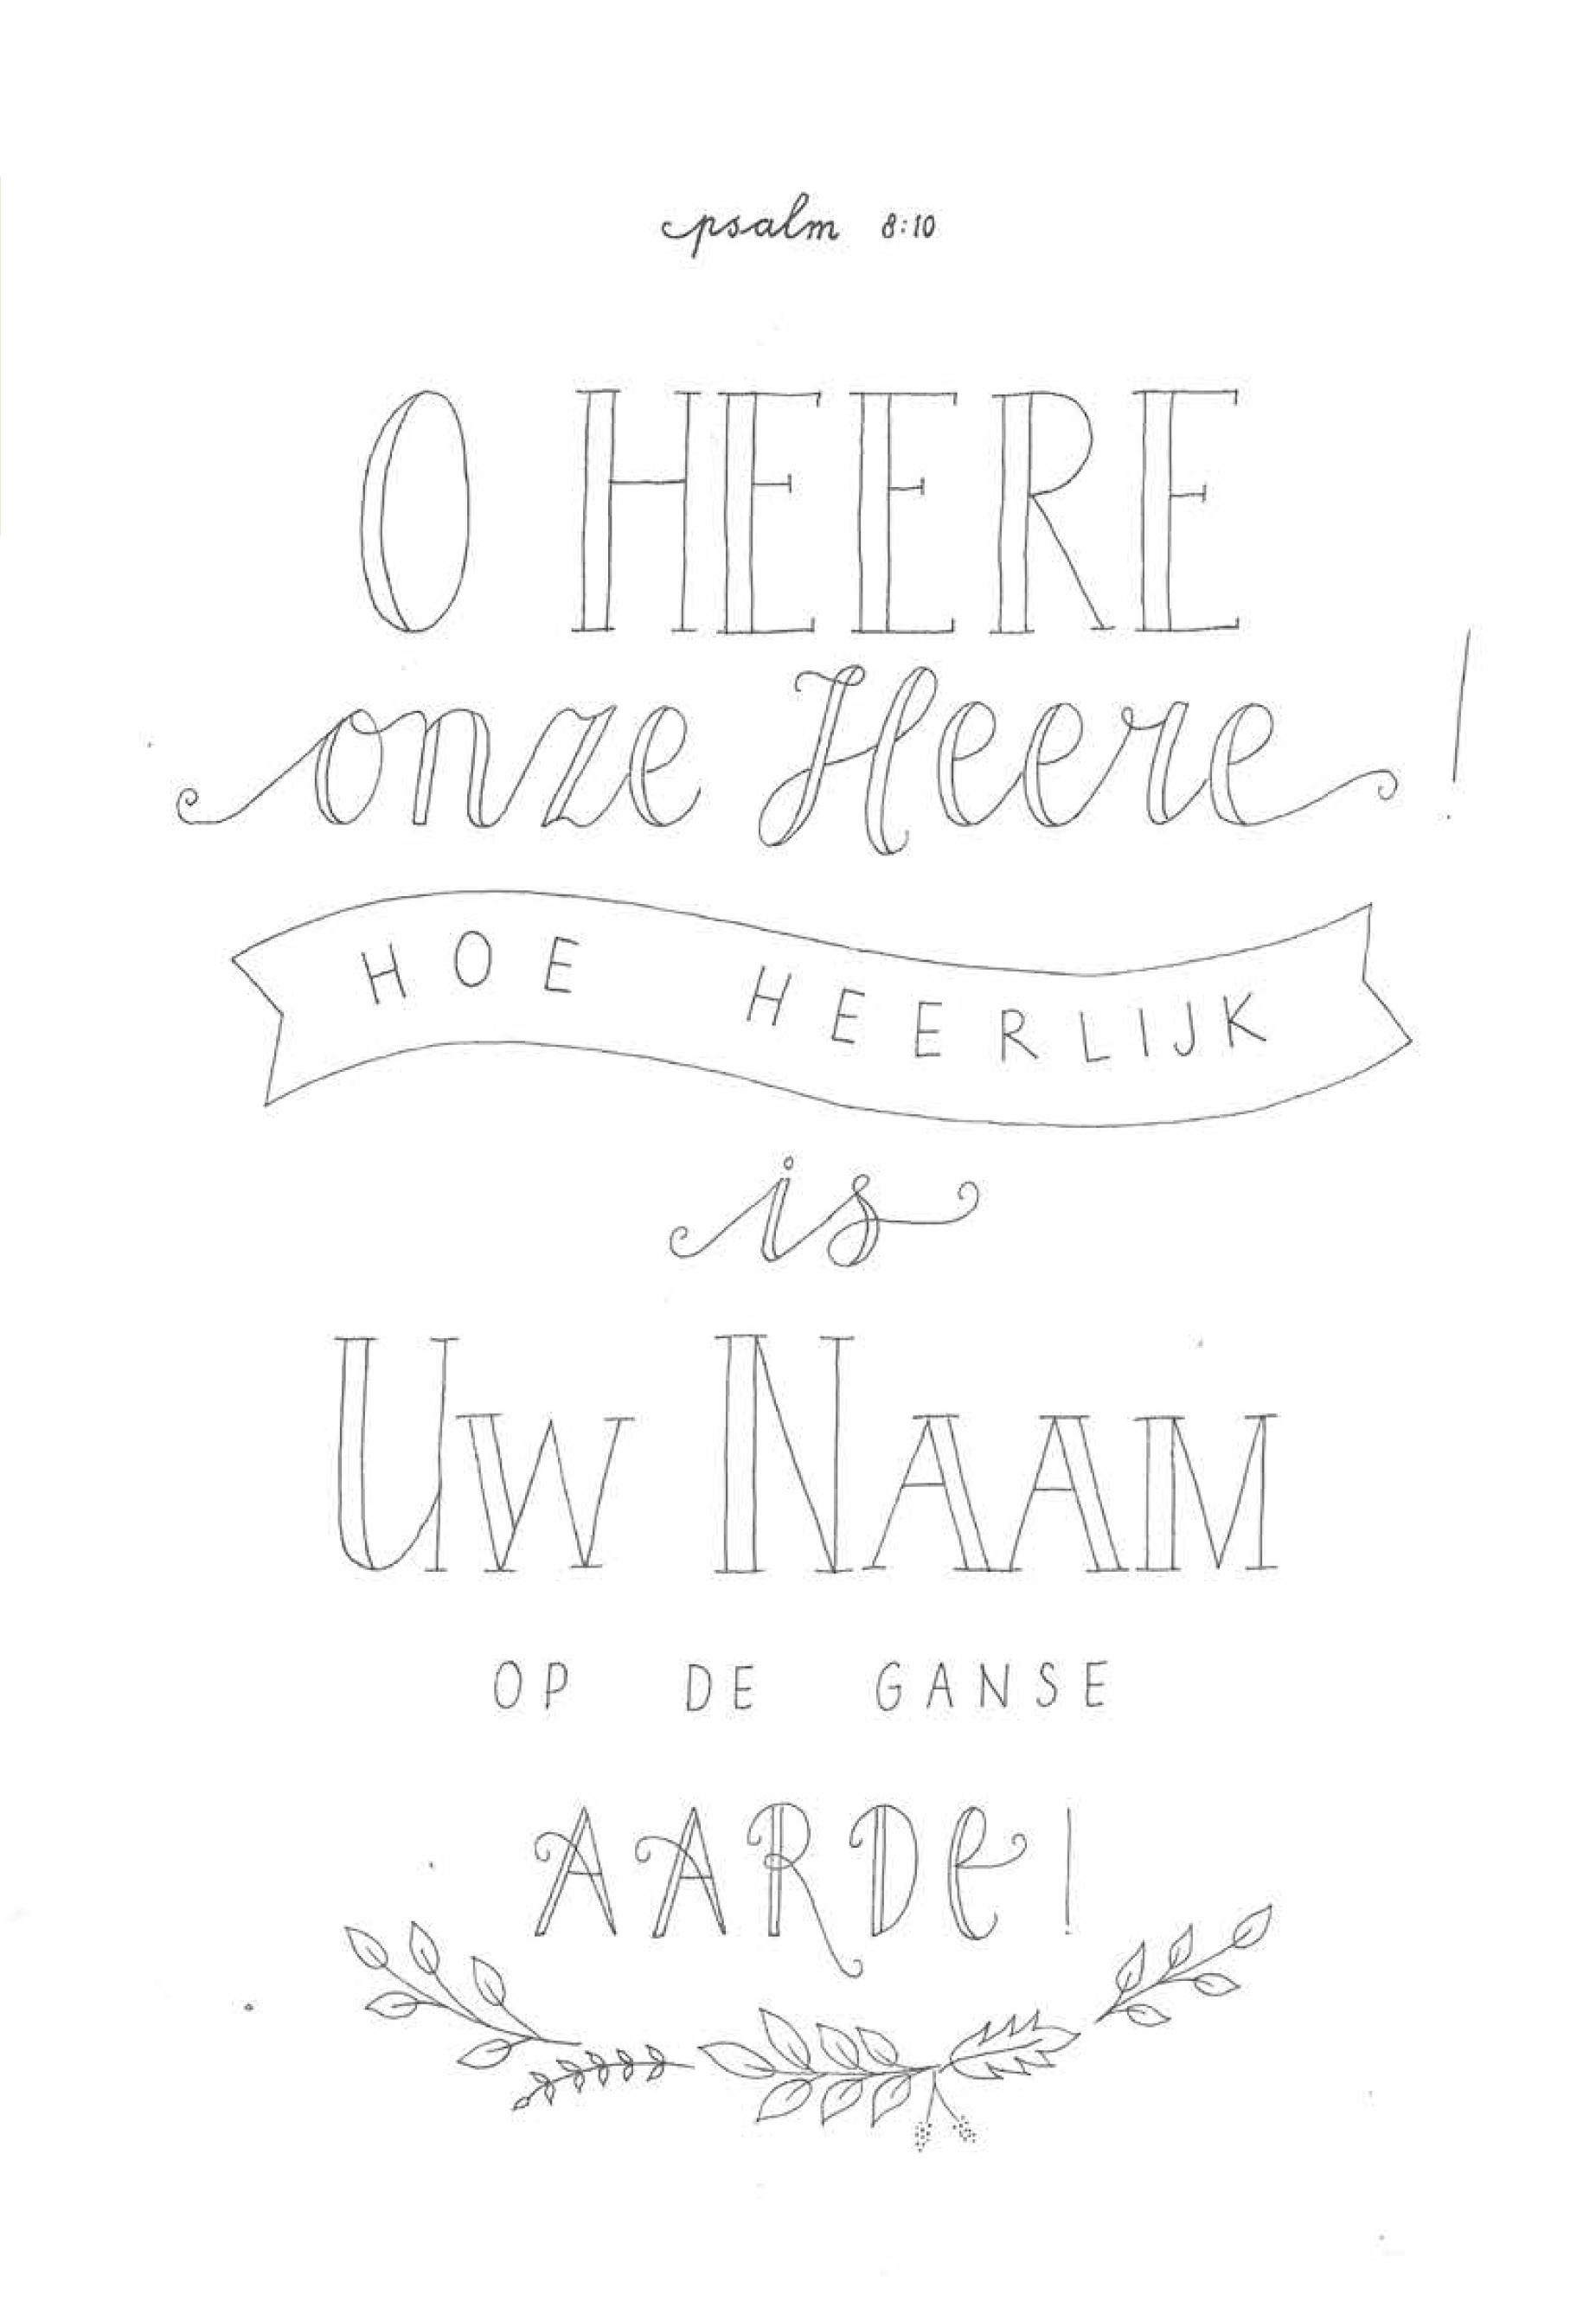 psalm 8:10
O HEERE
onze Heere!
HOE HEERLIJK
is
UW NAAM
OP DE GANSE
AARDe!